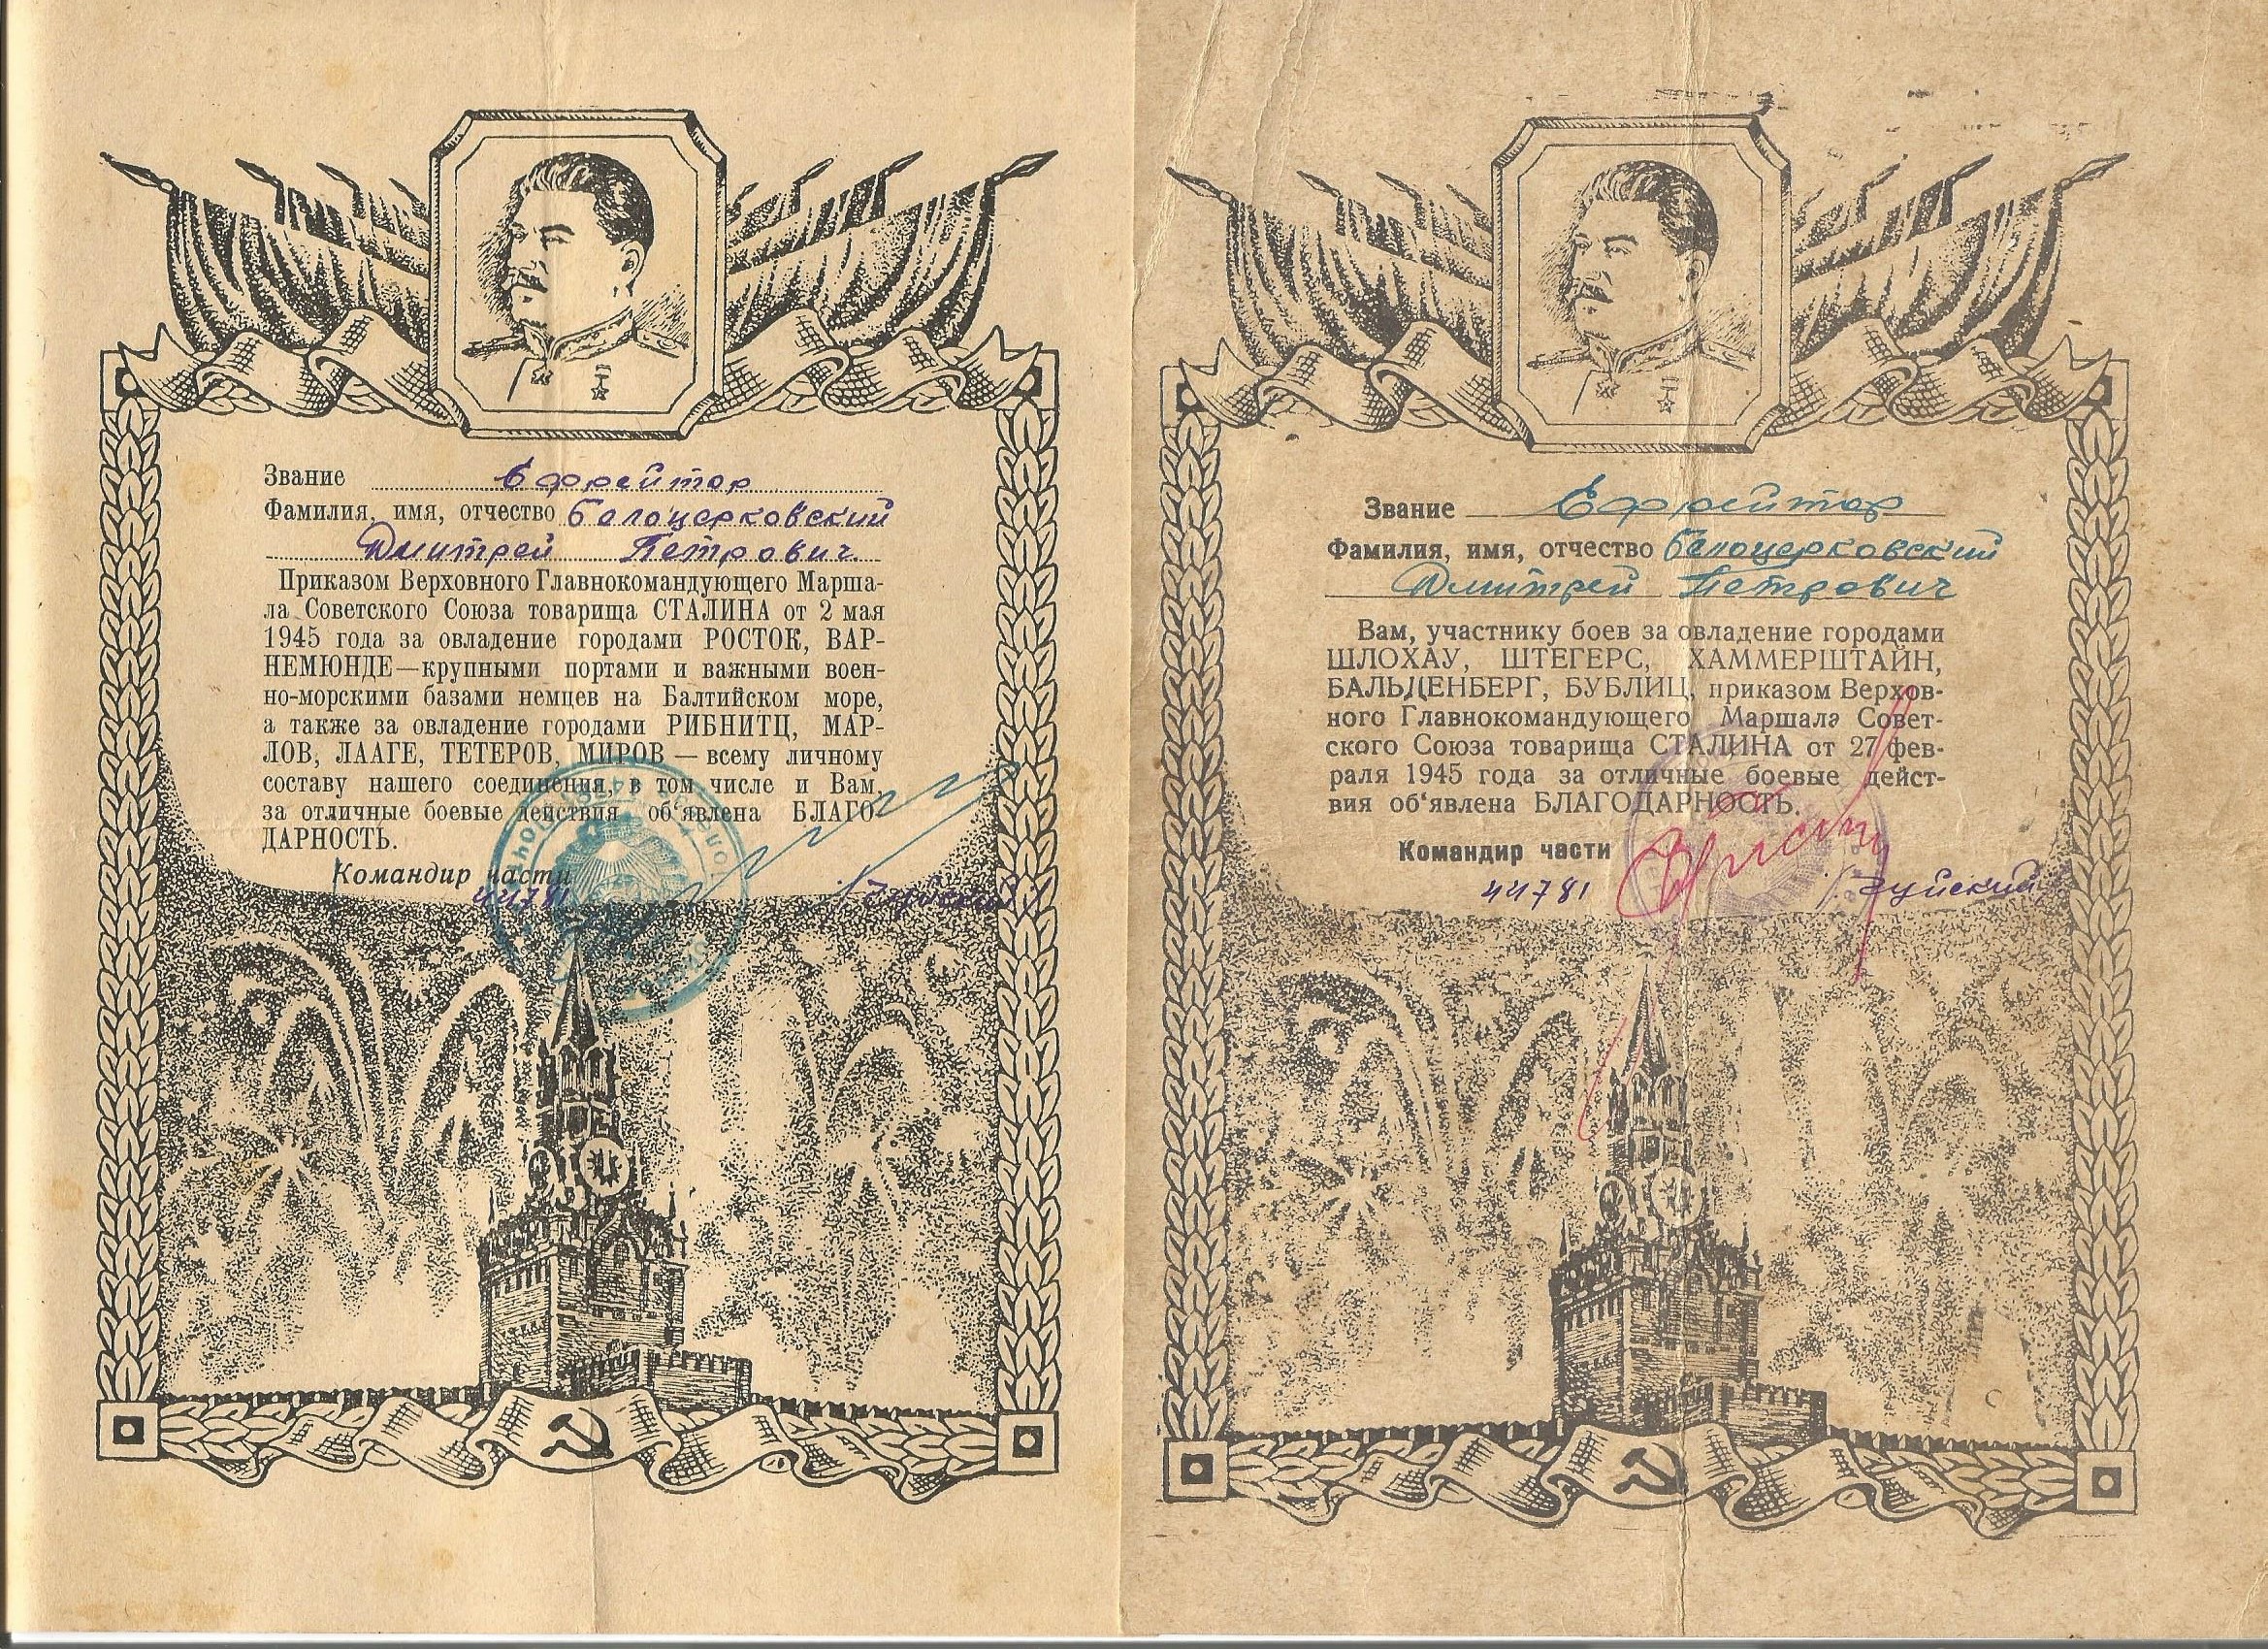 Звание Ефрейтор
Фамилия, имя, отчество Белоцерковский
Дмитрей Петрович
Приказом Верховного Главнокомандующего Марша-
ла Советского Союза товарища СТАЛИНА от 2 мая
1945 года за овладение городами РОСТОК, ВАР-
НЕМЮНДЕ—крупными портами и важными воен-
но-морскими базами немцев на Балтийском море,
а также за овладение городами РИБНИТЦ, МАР-
ЛОВ, ЛААГЕ, ТЕТЕРОВ, МИРОВ — всему личному
составу нашего соединения, в том числе и Вам,
за отличные боевые действия об‘явлена БЛАГО-
ДАРНОСТЬ.
Командир части
44781
Звание Ефрейтор
Фамилия, имя, отчество Белоцерковский
Дмитрей Петрович
Вам, участнику боев за овладение городами
ШЛОХАУ, ШТЕГЕРС, ХАММЕРШТАЙН,
БАЛЬДЕНБЕРГ, БУБЛИЦ, приказом Верхов-
ного Главнокомандующего Маршала Совет-
ского Союза товарища СТАЛИНА от 27 фев-
раля 1945 года за отличные боевые дейст-
вия об‘явлена БЛАГОДАРНОСТЬ.
Командир части
44781